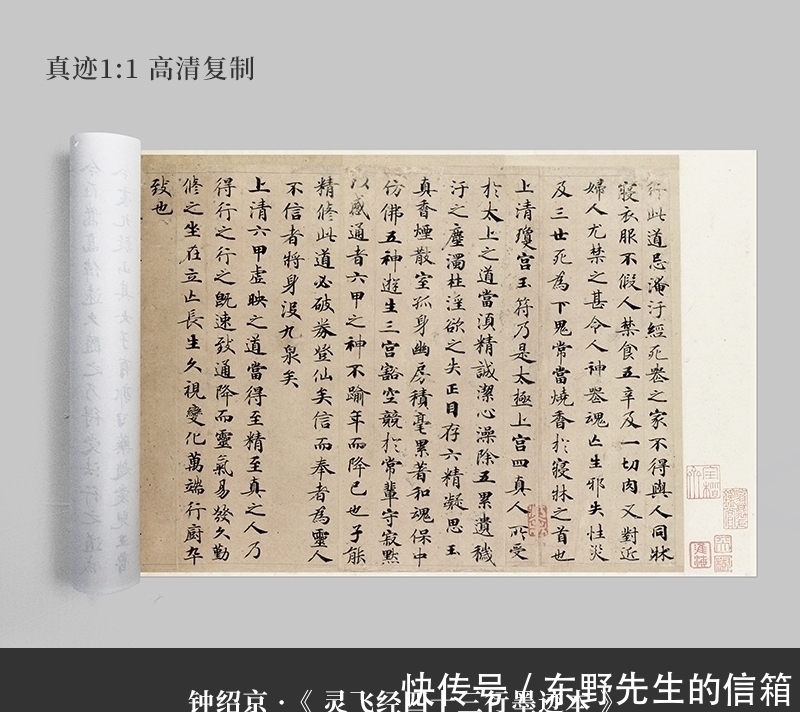 真迹1:1 高清复制
行此道忌潘汙經死喪之家不得與人同牀
寢衣服不假人禁食五辛及一切肉又對近
婦人尤禁之甚令人神喪魂亡生邪失性災
及三世死為下鬼常當燒香於寢牀之首也
上清瓊宮玉符乃是太極上宮四真人所受
於太上之道當須精誠潔心澡除五累遺穢
汙之塵濁杜淫欲之失正目存六精凝思玉
真香煙散室孤身幽房積毫累著和魂保中
仿佛五神遊生三宮豁空競於常輩守寂默
以感通者六甲之神不踰年而降已也子能
精修此道必破券登仙矣信而奉者為靈人
不信者將身沒九泉矣
上清六甲虛映之道當得至精至真之人乃
得行之行之既速致通降而靈氣易發久勤
修之坐在立亡長生久視變化萬端行廚卒
致也
钟绍京·《灵飞经四十三行墨迹本》
快传号 / 东野先生的信箱